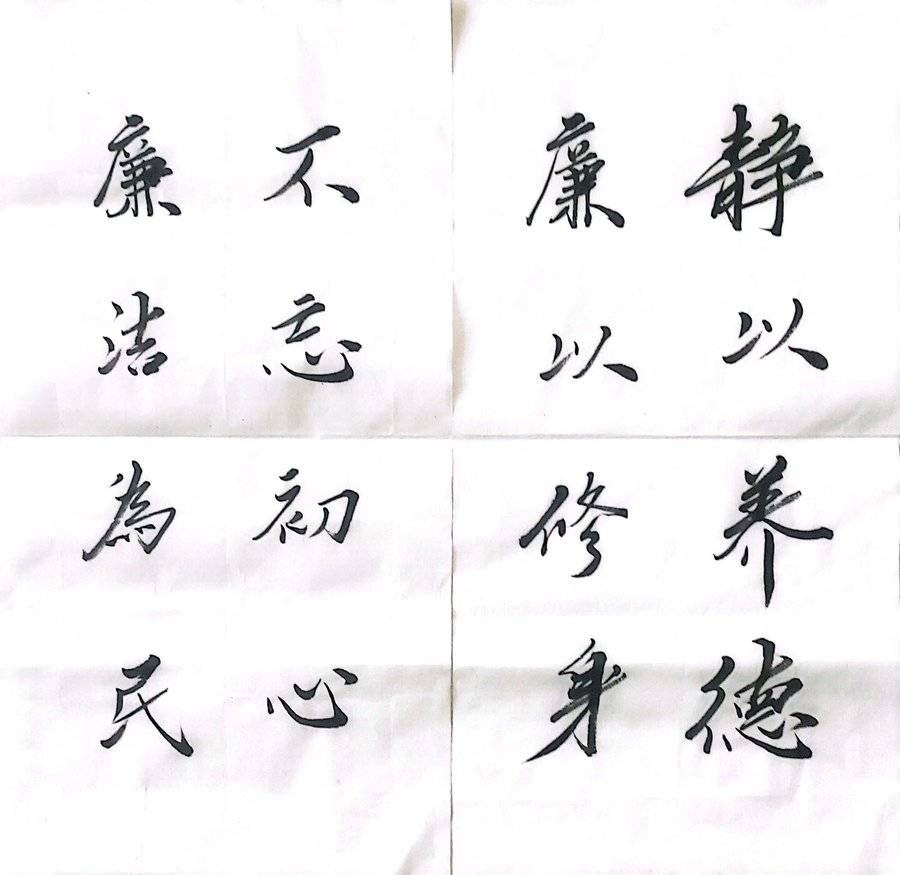 静以养德
廉以修身
不忘初心
廉洁為民